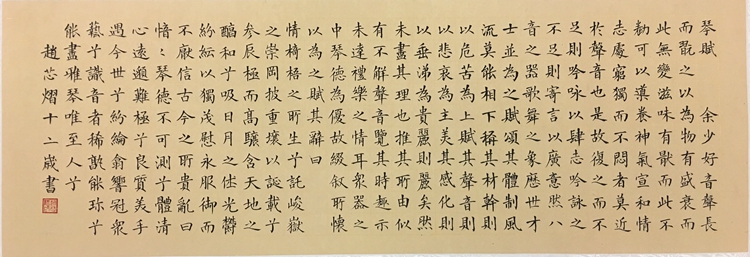 琴賦 余少好音聲長
而翫之以為物有盛衰而
此無變滋味有猒而此不
勌可以導養神氣宣和情
志處窮獨而不悶者莫近
於聲音也是故復之而不
足則吟咏以肆志吟詠之
不足則寄言以廣意然八
音之器歌舞之象歷世才
士並為之賦頌其體制風
流莫能相下稱其材幹則
以危苦為上賦其聲音則
以悲哀為主美其感化則
以垂涕為貴麗則麗矣然
未盡其理也推其所由似
有不解聲音覽其時趣示
未達禮樂之情衆器之
中琴德為優故綴叙所懷
以為之賦其辭曰
情椅梧之所生兮託峻嶽
之崇岡披重壤以誕載兮
参辰極而高驤含天地之
醇和兮吸日月之休光鬱
紛紜以獨茂慰永服御而
不厭信古今之所貴亂曰
愔々琴德不可測兮體清
心遠邈難極兮良質美手
遇今世兮紛綸翕響冠衆
藝兮識音者稀孰能珍兮
能盡雅琴唯至人兮
趙芯熠十二歲書